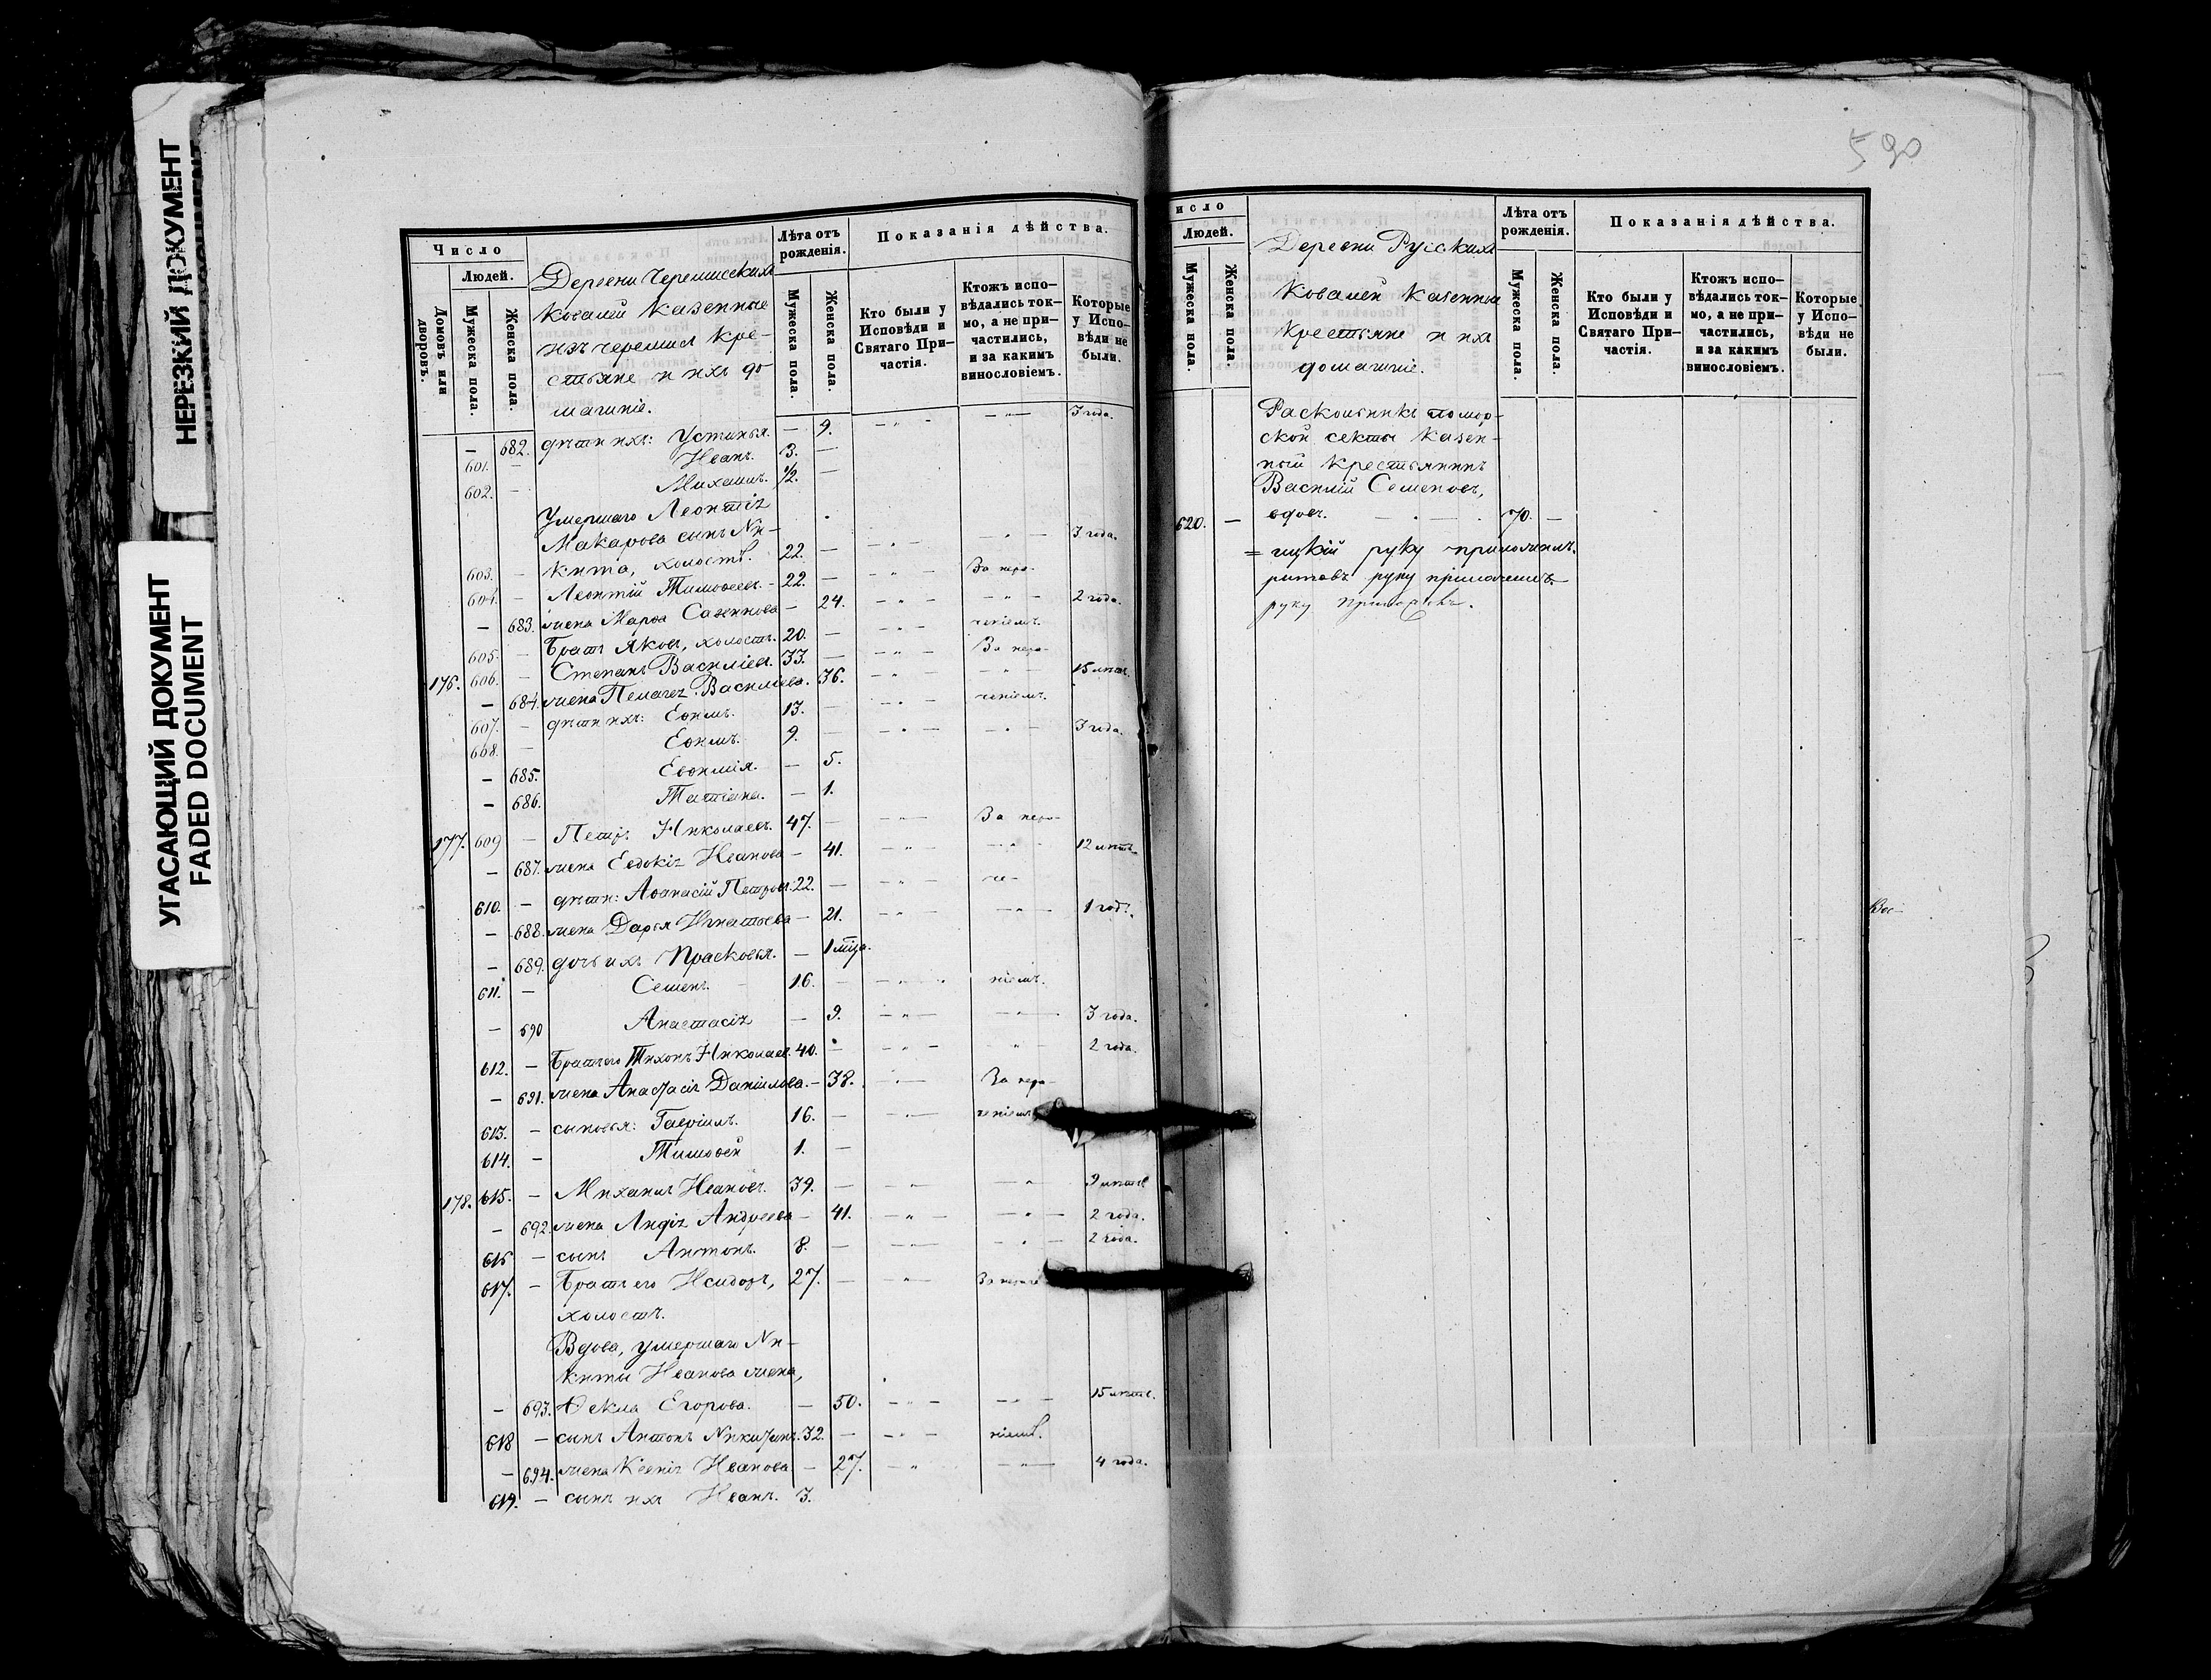 НЕРЕЗКИЙ ДОКУМЕНТ
УГАСАЮЩИЙ ДОКУМЕНТ
FADED DOCUMENT
Число
Людей.
Домовъ или дворовъ.
Мужеска пола.
Женска пола.
Деревни Черемисскихъ
Ковалей казенные
изъ черемисъ кре-
стьяне и ихъ до-
машніе.
Лѣта отъ рожденія.
Мужеска пола.
Женска пола.
Показанія дѣйства.
Кто были у Исповѣди и Святаго При-частія.
Ктожъ испо-вѣдались ток-мо, а не при-частились, и за какимъ винословіемъ.
Которые у Испо-вѣди не были.
— 682. дѣти ихъ: Устинья. — 9. — „ — — „ — 3 года.
601. — Иванъ. 3. —
602. — Михаилъ. ½. —
Умершаго Леонтія
Макарова сынъ Ни-
603. — кита, холостъ. 22. — — „ — — „ — 3 года.
604. — Леонтій Тимофеевъ. 22. — — „ — За нера-
— 683. жена Марѳа Савинова — 24. — „ — — „ — 2 года.
605. — Братъ Яковъ, холостъ. 20. — — „ — ченіемъ.
176. 606. — Степанъ Василіевъ. 33. — — „ — За нера-
— 684. жена Пелагея Василіева. 36. — „ — — „ — 15 лѣтъ.
607. — дѣти ихъ: Ефимъ. 13. — — „ — ченіемъ.
608. — Ефимъ. 9. — — „ — — „ — 3 года.
— 685. Евфимія. — 5.
— 686. Татіана. — 1.
177. 609 — Петръ Николаевъ. 47. — — „ — За нера-
— 687. жена Евдокія Иванова — 41. — „ — — „ — 12 лѣтъ
610. — дѣти: Аѳанасій Петровъ. 22. — — „ — че-
— 688. жена Дарья Игнатьева — 21. — „ — — „ — 1 годъ.
— 689. дочь ихъ Прасковья. — 1 мѣца.
611. — Семенъ. 16. — — „ — ніемъ.
— 690 Анастасія — 9. — „ — — „ — 3 года.
612. — Братъ его Тихонъ Николаев. 40. — — „ — — „ — 2 года.
— 691. жена Анастасія Даніилова. — 38. — „ — За нера-
613. — сыновья: Гавріилъ. 16. — — „ — ченіемъ
614. — Тимоѳей 1. —
178. 615. — Михаилъ Ивановъ. 39. — — „ — — „ 9 лѣтъ
— 692. жена Лидія Андреева — 41. — „ — — „ — 2 года.
616 — сынъ Антонъ. 8. — — „ — — „ — 2 года.
617. — Братъ его Исидоръ, 27. — — „ —
холостъ.
Вдова, умершаго Ни-
киты Иванова жена,
— 693. Ѳекла Егорова. — 50. — „ — — „ — 15 лѣтъ.
618 — сынъ Антонъ Никитинъ. 32. — — „ — ніемъ.
— 694. жена Ксенія Иванова — 27. — „ — „ — 4 года.
619. — сынъ ихъ Иванъ. 3.
590
исло
Людей.
Мужеска пола.
Женска пола.
Деревни Русскихъ
Ковалей казенные
крестьяне и ихъ
домашніе.
Лѣта отъ рожденія.
Мужеска пола.
Женска пола.
Показанія дѣйства.
Кто были у Исповѣди и Святаго При-частія.
Ктожъ испо-вѣдались ток-мо, а не при-частились, и за какимъ винословіемъ.
Которые у Испо-вѣди не были.
Раскольникъ помор-
ской секты казен-
ный крестьянинъ
Василій Семеновъ,
620. — вдовъ. — . — 70. —
=ицкій руку приложилъ.
ритовъ руку приложилъ
руку приложилъ.